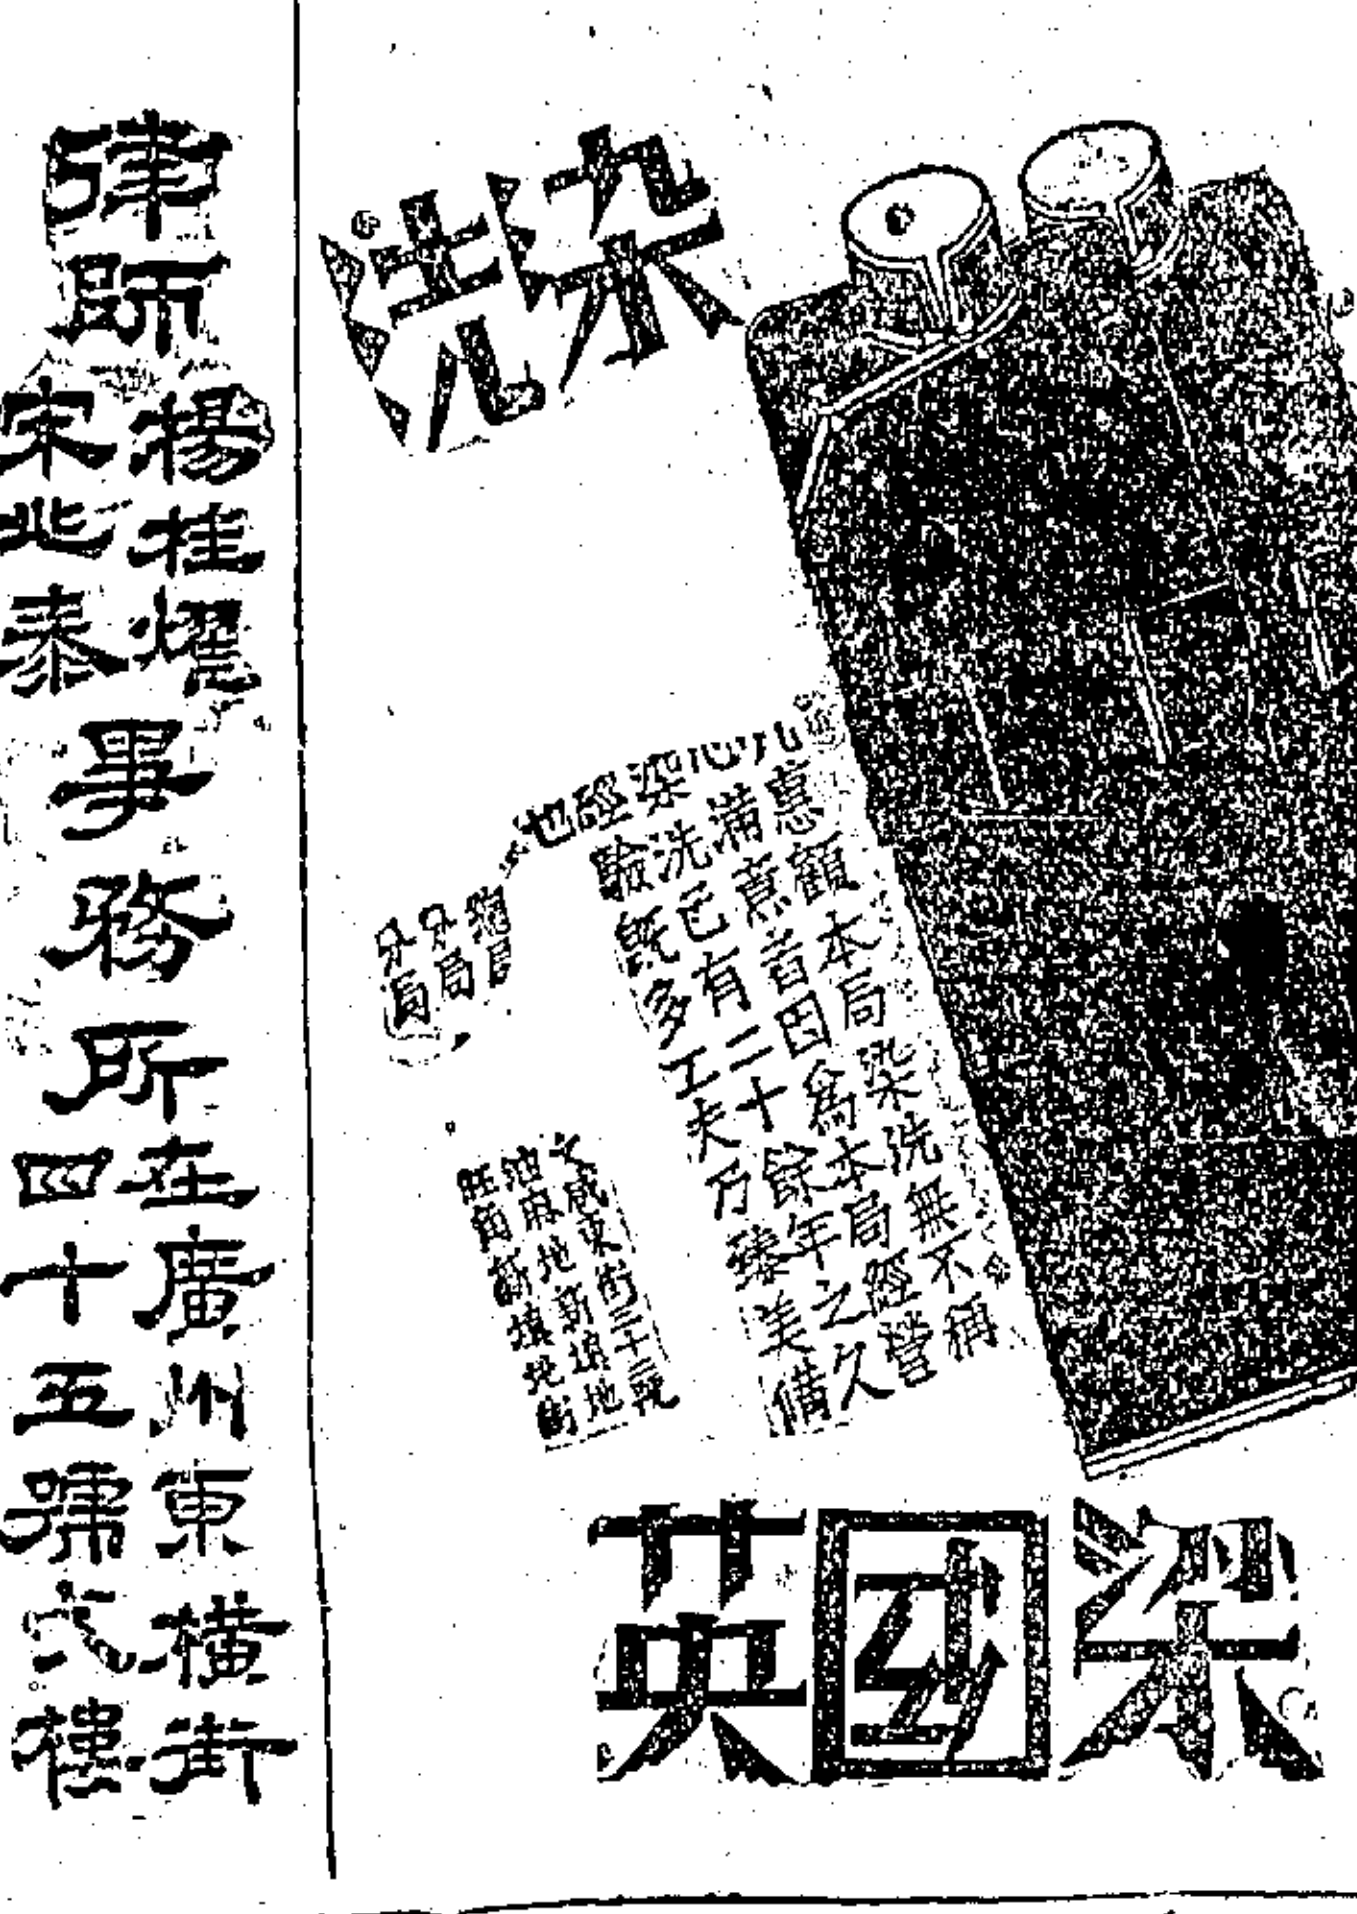 染洗
惠顧本局染洗無不稱
滿意者因為本局經營
染洗已有二十餘年之久
經驗既多工夫乃臻美備
也
總局
分局
分局
文咸東街三十三號
油麻地新填地
旺角新填地街
梁國英
律師
楊桂
宋兆泰
事務所
在廣州東橫街
四十五號弍樓